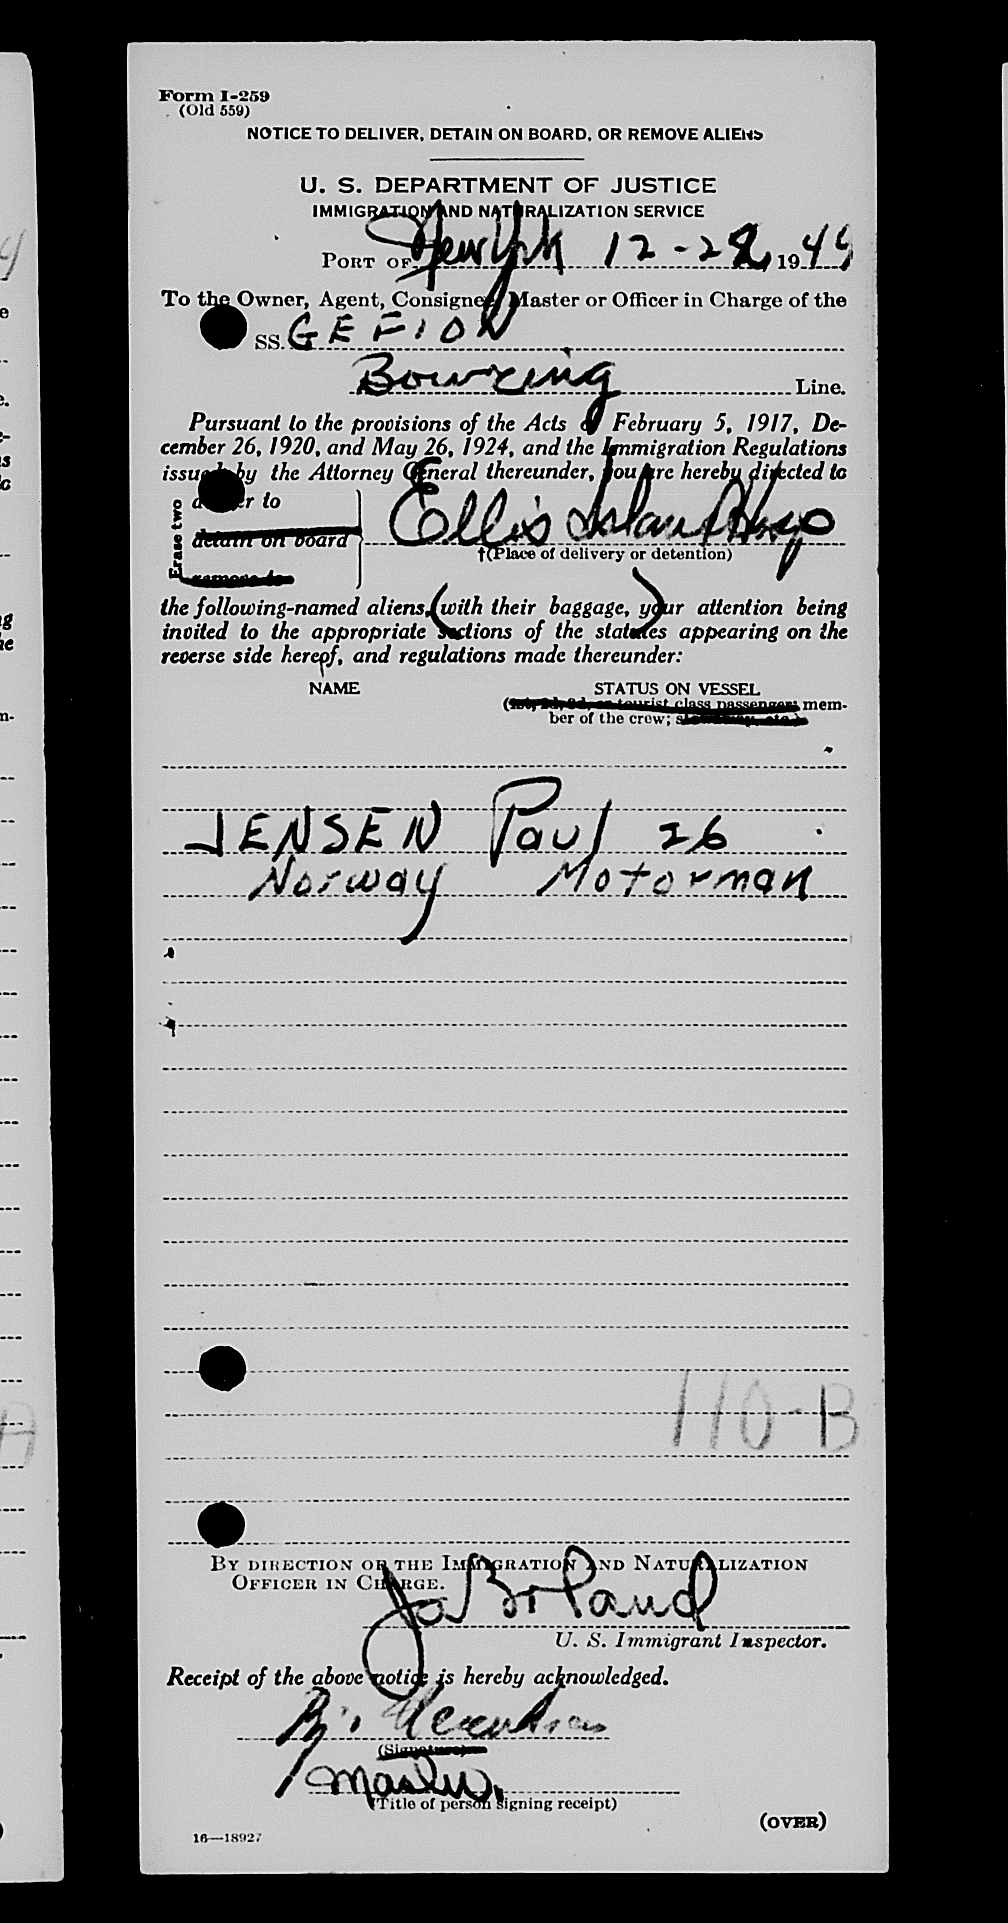 Form I-259
(Old 559)
NOTICE TO DELIVER, DETAIN ON BOARD, OR REMOVE ALIENS
U. S. DEPARTMENT OF JUSTICE
IMMIGRATION AND NATURALIZATION SERVICE
PORT OF New York 12-28, 1949
To the Owner, Agent, Consignee, Master or Officer in Charge of the
SS. GEFION
Bowring Line.
Pursuant to the provisions of the Acts of February 5, 1917, De-
cember 26, 1920, and May 26, 1924, and the Immigration Regulations
issued by the Attorney General thereunder, you are hereby directed to
Erase two
deliver to
detain on board Ellis Island Hosp
remove to
†(Place of delivery or detention)
the following-named aliens, (with their baggage, your) attention being
invited to the appropriate sections of the statutes appearing on the
reverse side hereof, and regulations made thereunder:
NAME STATUS ON VESSEL
(1st, 2d, 3d, or tourist class passenger; mem-
ber of the crew; stowaway, etc.)
JENSEN Paul 26
Norway Motorman
110-B
BY DIRECTION OF THE IMMIGRATION AND NATURALIZATION
OFFICER IN CHARGE.
U. S. Immigrant Inspector.
Receipt of the above notice is hereby acknowledged.
(Signature)
Master.
(Title of person signing receipt)
(OVER)
16—18927